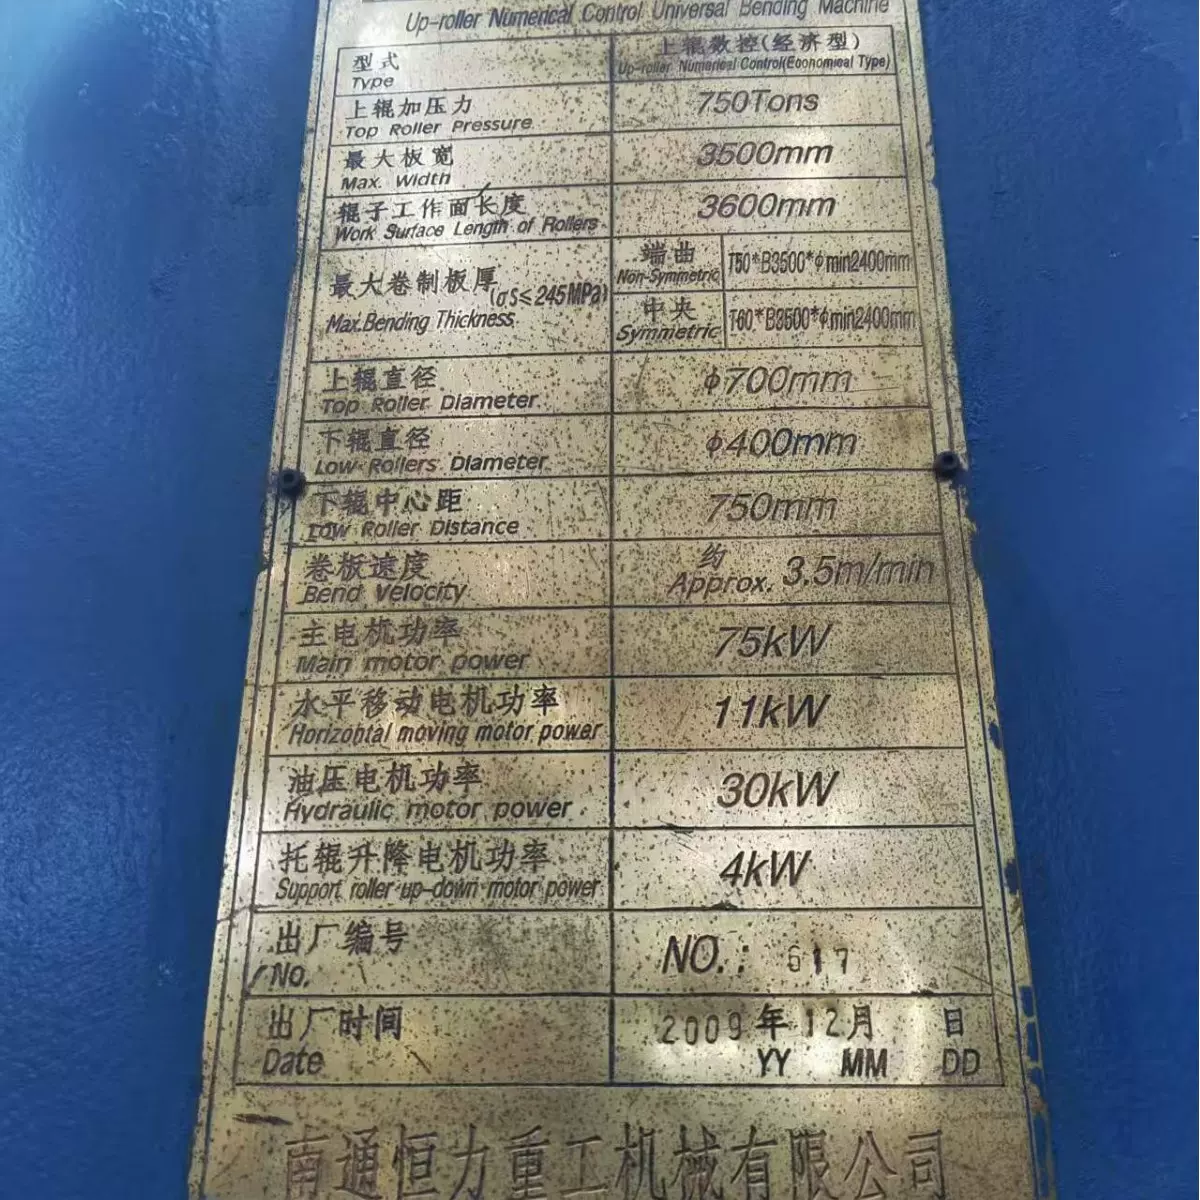 Up-roller Numerical Control Universal Bending Machine
型式
Type
上辊数控(经济型)
Up-roller Numerical Control(Economical Type)
上辊加压力
Top Roller Pressure
750Tons
最大板宽
Max. Width
3500mm
辊子工作面长度
Work Surface Length of Rollers
3600mm
最大卷制板厚(σs≤245MPa)
Max.Bending Thickness
端曲
Non-Symmetric
T50*B3500*φmin2400mm
中央
Symmetric
T60*B3500*φmin2400mm
上辊直径
Top Roller Diameter
φ700mm
下辊直径
Low Rollers Diameter
φ400mm
下辊中心距
Low Roller Distance
750mm
卷板速度
Bend Velocity
约
Approx. 3.5m/min
主电机功率
Main motor power
75kW
水平移动电机功率
Horizontal moving motor power
11kW
油压电机功率
Hydraulic motor power
30kW
托辊升降电机功率
Support roller up-down motor power
4kW
出厂编号
No.
NO.: 617
出厂时间
Date
2009年12月 日
YY MM DD
南通恒力重工机械有限公司